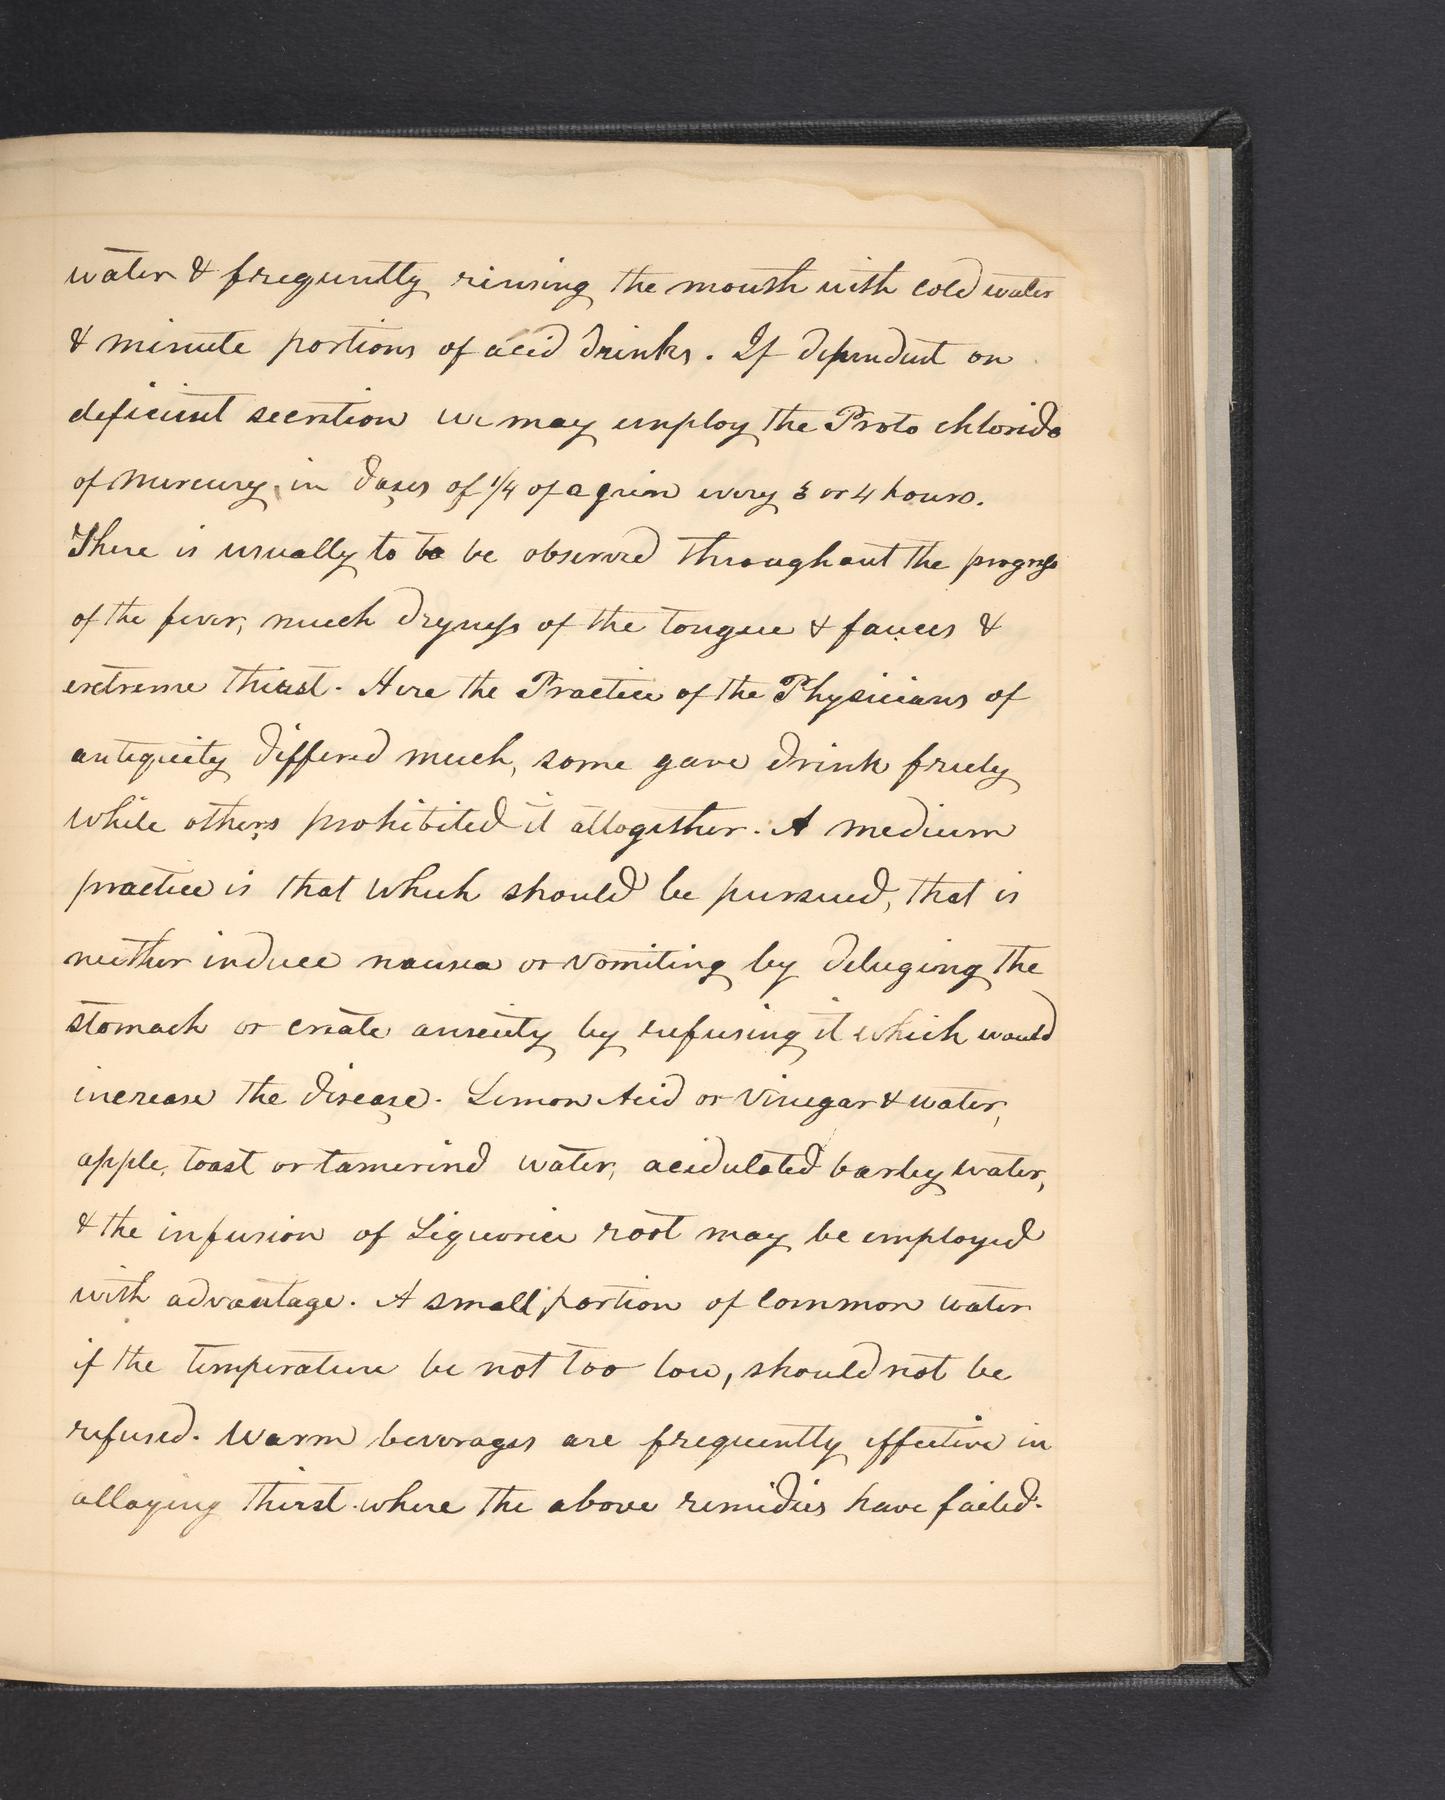 water & frequently rinsing the mouth with cold water
& minute portions of acid drinks. If dependent on
deficient secretion we may employ the Proto chloride
of Mercury, in doses of 1/4 of a grain every 3 or 4 hours.
There is usually to be be observed throughout the progress
of the fever, much dryness of the tongue & fauces &
extreme thirst. Here the Practice of the Physicians of
antiquity differed much, some gave drink freely
while others prohibited it altogether. A medium
practice is that which should be pursued, that is
neither induce nausea or vomiting by deluging the
stomach or create anxiety by refusing it which would
increase the disease. Lemon Acid or Vinegar & water,
apple, toast or tamerind water, acidulated barley water,
& the infusion of Liquorice root may be employed
with advantage. A small portion of common water
if the temperature be not too low, should not be
refused. Warm beverages are frequently effective in
allaying thirst where the above remidies have failed.